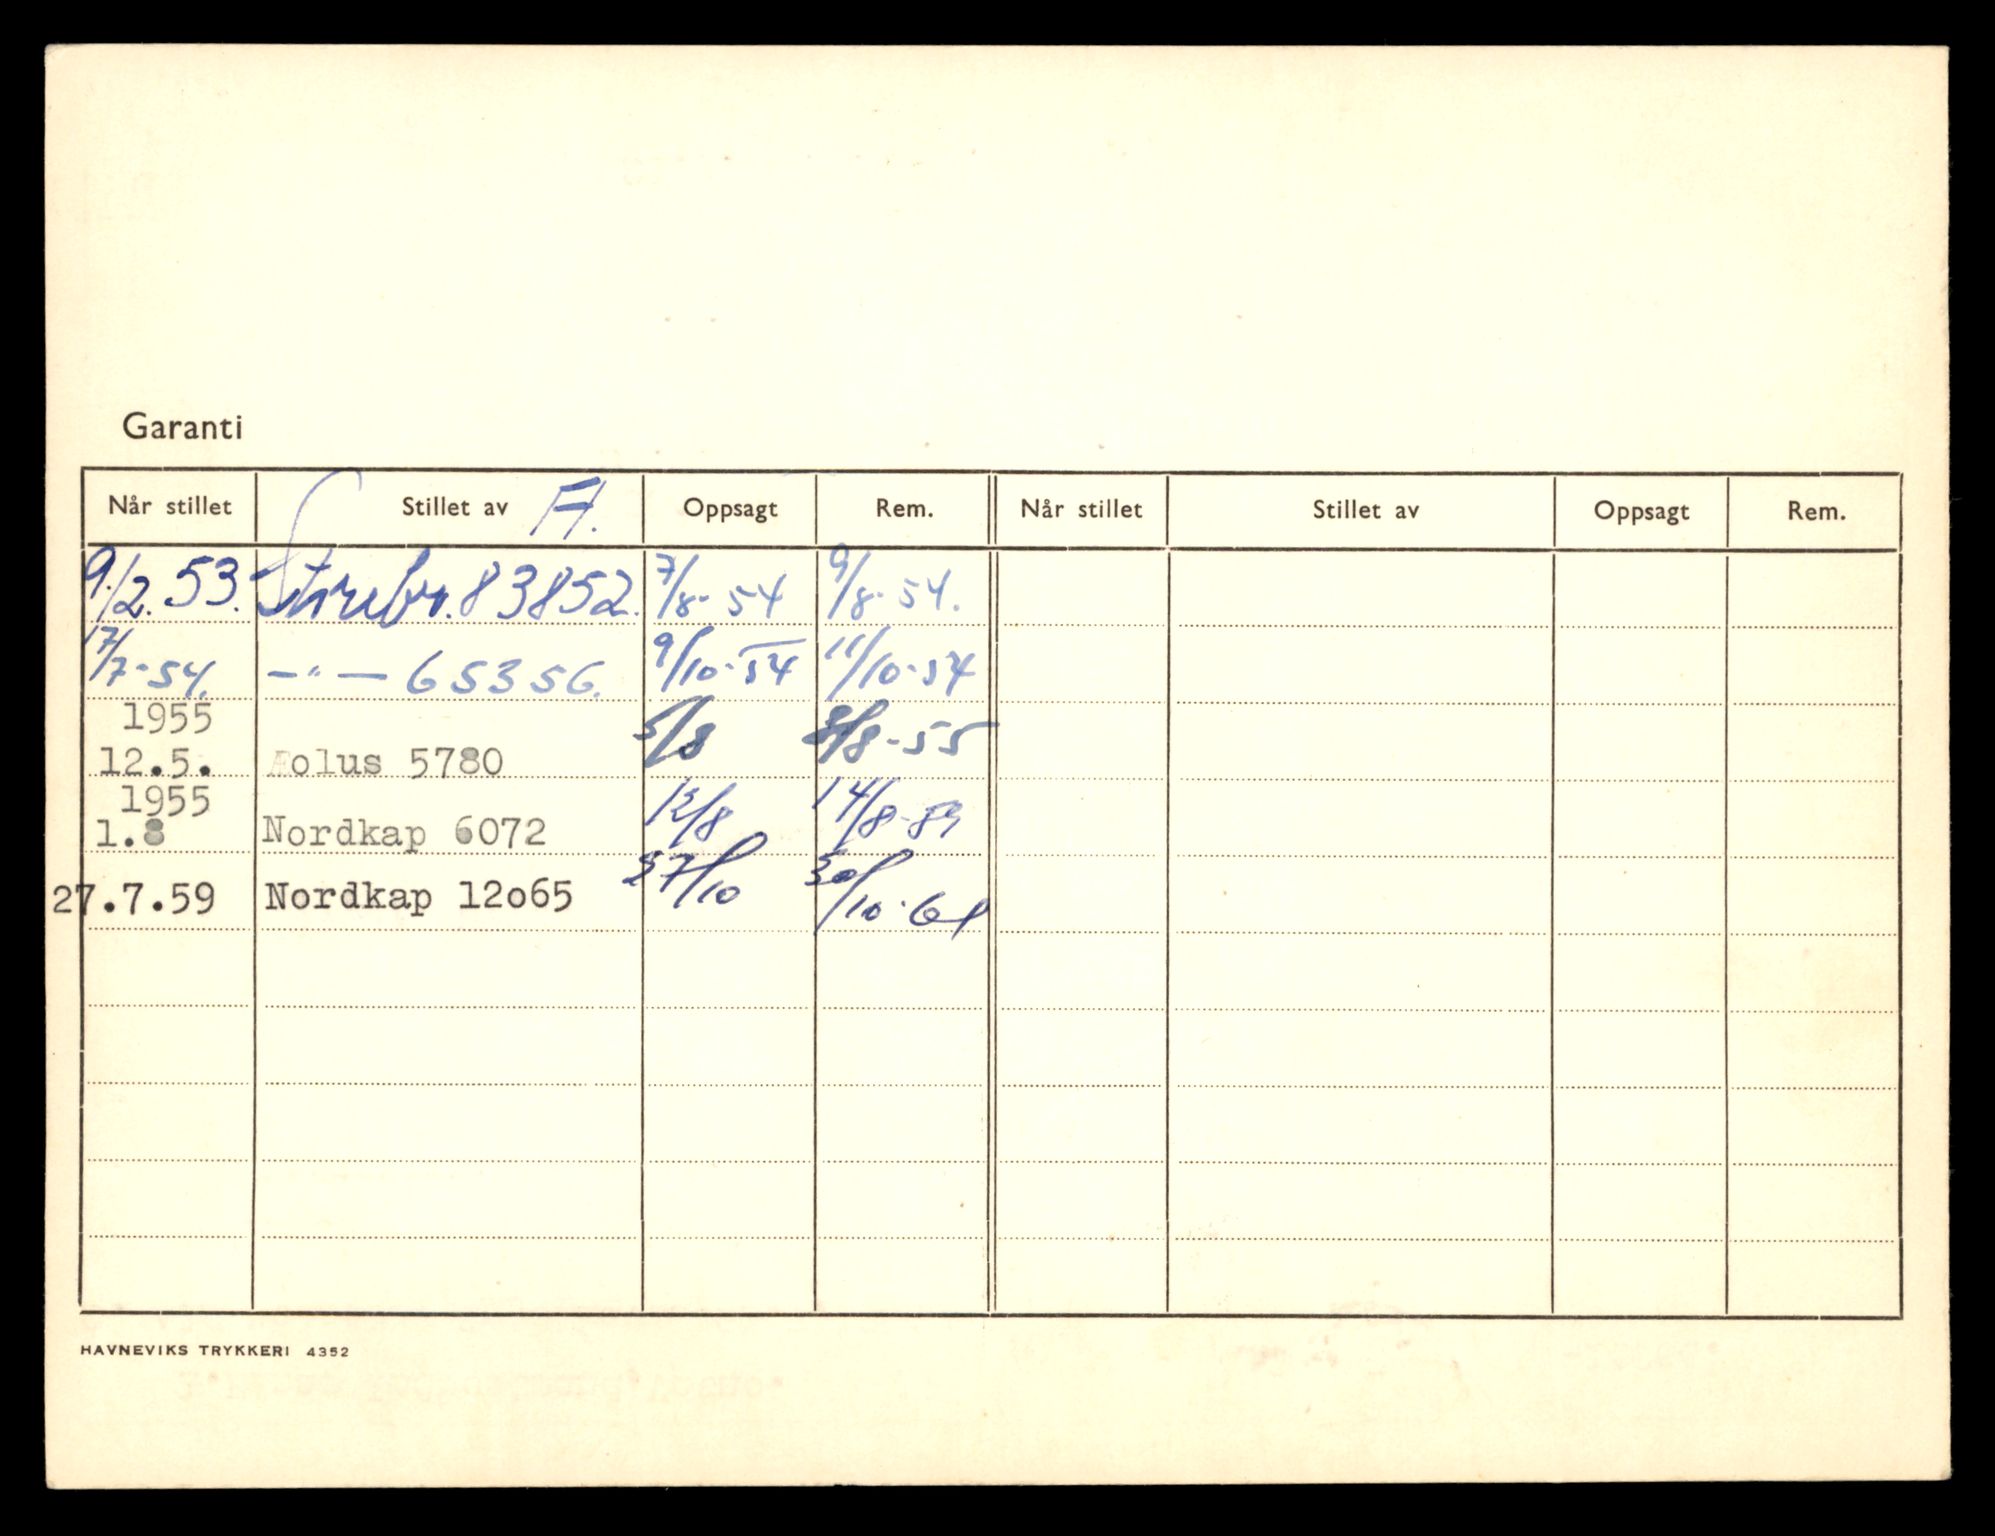 Garanti
Når stillet Stillet av A. Oppsagt Rem. Når stillet Stillet av Oppsagt Rem.
9/2. 53. Storebr. 83852. 7/8- 54 9/8- 54.
17/7-54. —"— 65356. 9/10-54 11/10-54
1955
12.5. Æolus 5780 5/8 8/8-55
1955
1.8 Nordkap 6072 12/8 14/8-59
27.7.59 Nordkap 12o65 27/10 30/10-61
HAVNEVIKS TRYKKERI 4352